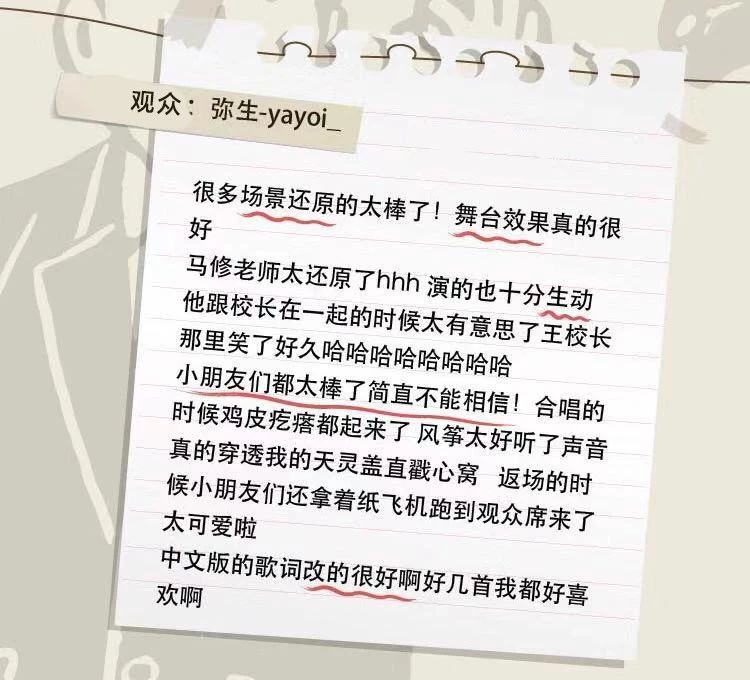 观众：弥生-yayoi_
很多场景还原的太棒了！舞台效果真的很
好
马修老师太还原了hhh 演的也十分生动
他跟校长在一起的时候太有意思了王校长
那里笑了好久哈哈哈哈哈哈哈哈
小朋友们都太棒了简直不能相信！合唱的
时候鸡皮疙瘩都起来了 风筝太好听了声音
真的穿透我的天灵盖直戳心窝 返场的时
候小朋友们还拿着纸飞机跑到观众席来了
太可爱啦
中文版的歌词改的很好啊好几首我都好喜
欢啊